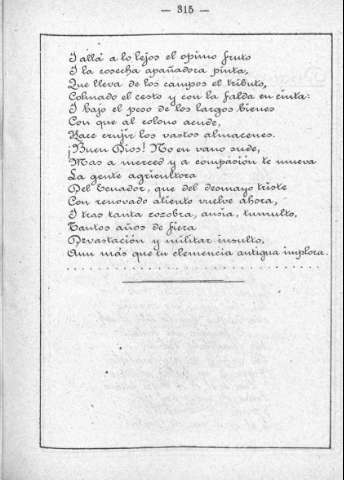 — 315 —
I allá a lo lejos el opimo fruto
I la cosecha apañadora pinta,
Que lleva de los campos el tributo,
Colmado el cesto y con la falda en cinta:
I bajo el peso de los largos bienes
Con que al colono acude,
Hace crujir los vastos almacenes.
¡Buen Dios! No en vano sude,
Mas a merced y a compasion te mueva
La gente agricultora
Del Ecuador, que del desmayo triste
Con renovado aliento vuelve ahora,
I tras tanta zozobra, ansia, tumulto,
Tantos años de fiera
Devastación y militar insulto,
Aun más que tu clemencia antigua implora.
. . . . . . . . . . . . . . . . . . . . . . . . . . . . . .